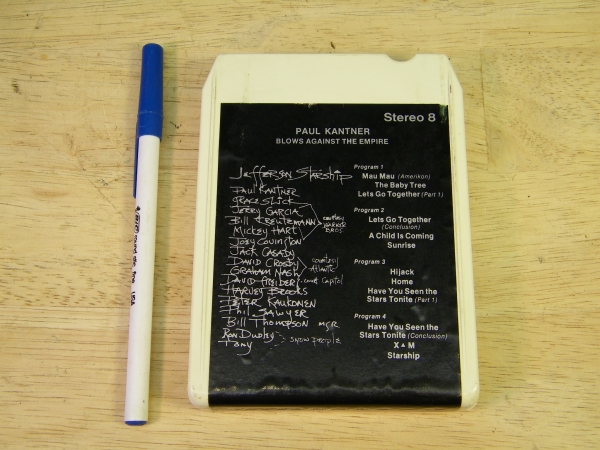 Stereo 8
PAUL KANTNER
BLOWS AGAINST THE EMPIRE
Jefferson Starship
PAUL KANTNER
GRACE SLICK
JERRY GARCIA
Bill KREUTZMANN
MICKEY HART
courtesy
WARNER
BROS
JOEY COVINGTON
JACK CASADY
DAVID CROSBY
GRAHAM NASH
courtesy
Atlantic
DAVID FREIBERG
HARVEY BROOKS
PETER KAUKONEN
Phil SAWYER
Bill THOMPSON MGR
RON DUDLEY
TOMY
SNOW PEOPLE
Program 1
Mau Mau (Amerikon)
The Baby Tree
Lets Go Together (Part 1)
Program 2
Lets Go Together
(Conclusion)
A Child Is Coming
Sunrise
Program 3
Hijack
Home
Have You Seen the
Stars Tonite (Part 1)
Program 4
Have You Seen the
Stars Tonite (Conclusion)
X▲M
Starship
USA